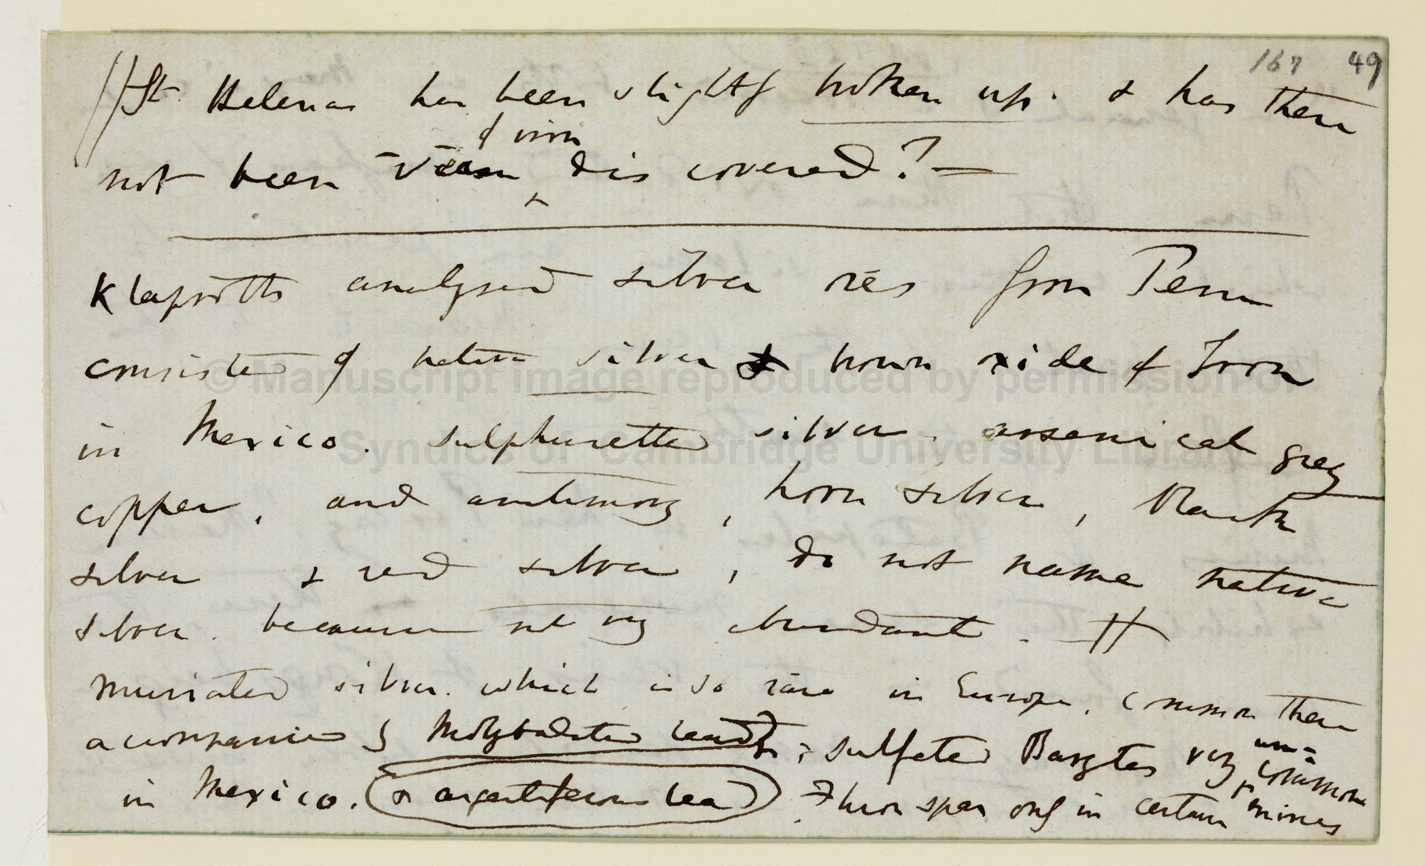 167 49
//St. Helena has been slightly broken up. & has there
of iron
not been vein ^ discovered? —
Klaproth analysed silver ores from Peru
consisted of native silver & brown oxide of Iron
in Mexico. sulphuretted silver. arsenical grey
copper, and antimony, horn silver, black
silver & red silver, do not name native
silver. because not very abundant. //
muriated silver. which is so rare in Europe, common there
accompanied by Molybdated lead; sulfated Barytes very un=common
in Mexico. (& argentiferous lead) Fluor spar only in certain mines
© Manuscript image reproduced by permission of
Syndics of Cambridge University Library